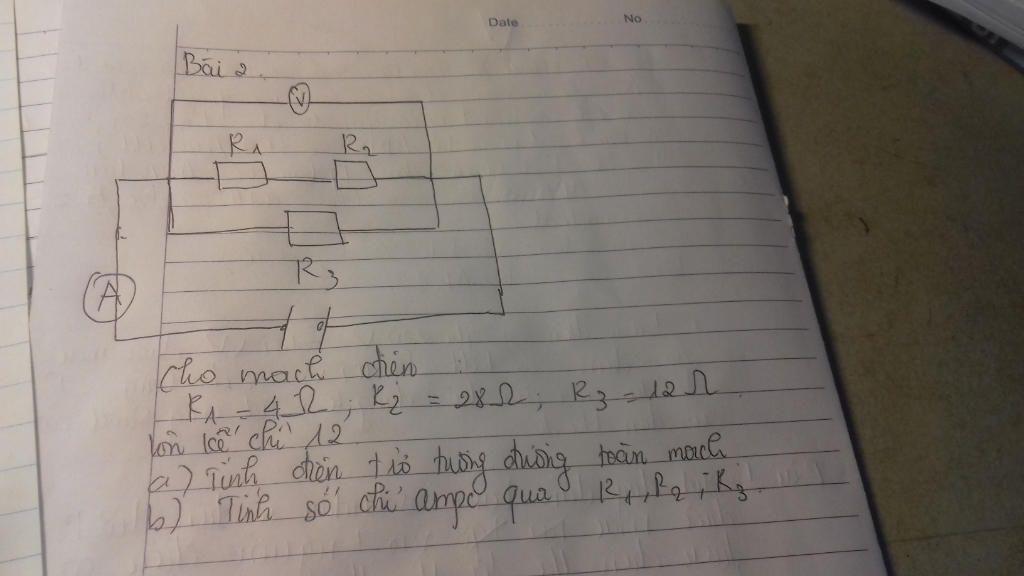 Date No
Bài 2.
V
R1 R2
R3
A
Cho mạch điện :
R1 = 4 Ω ; R2 = 28 Ω ; R3 = 12 Ω
Vôn kế chỉ 12
a) Tính điện trở tương đương toàn mạch
b) Tính số chỉ ampe qua R1, R2, R3.